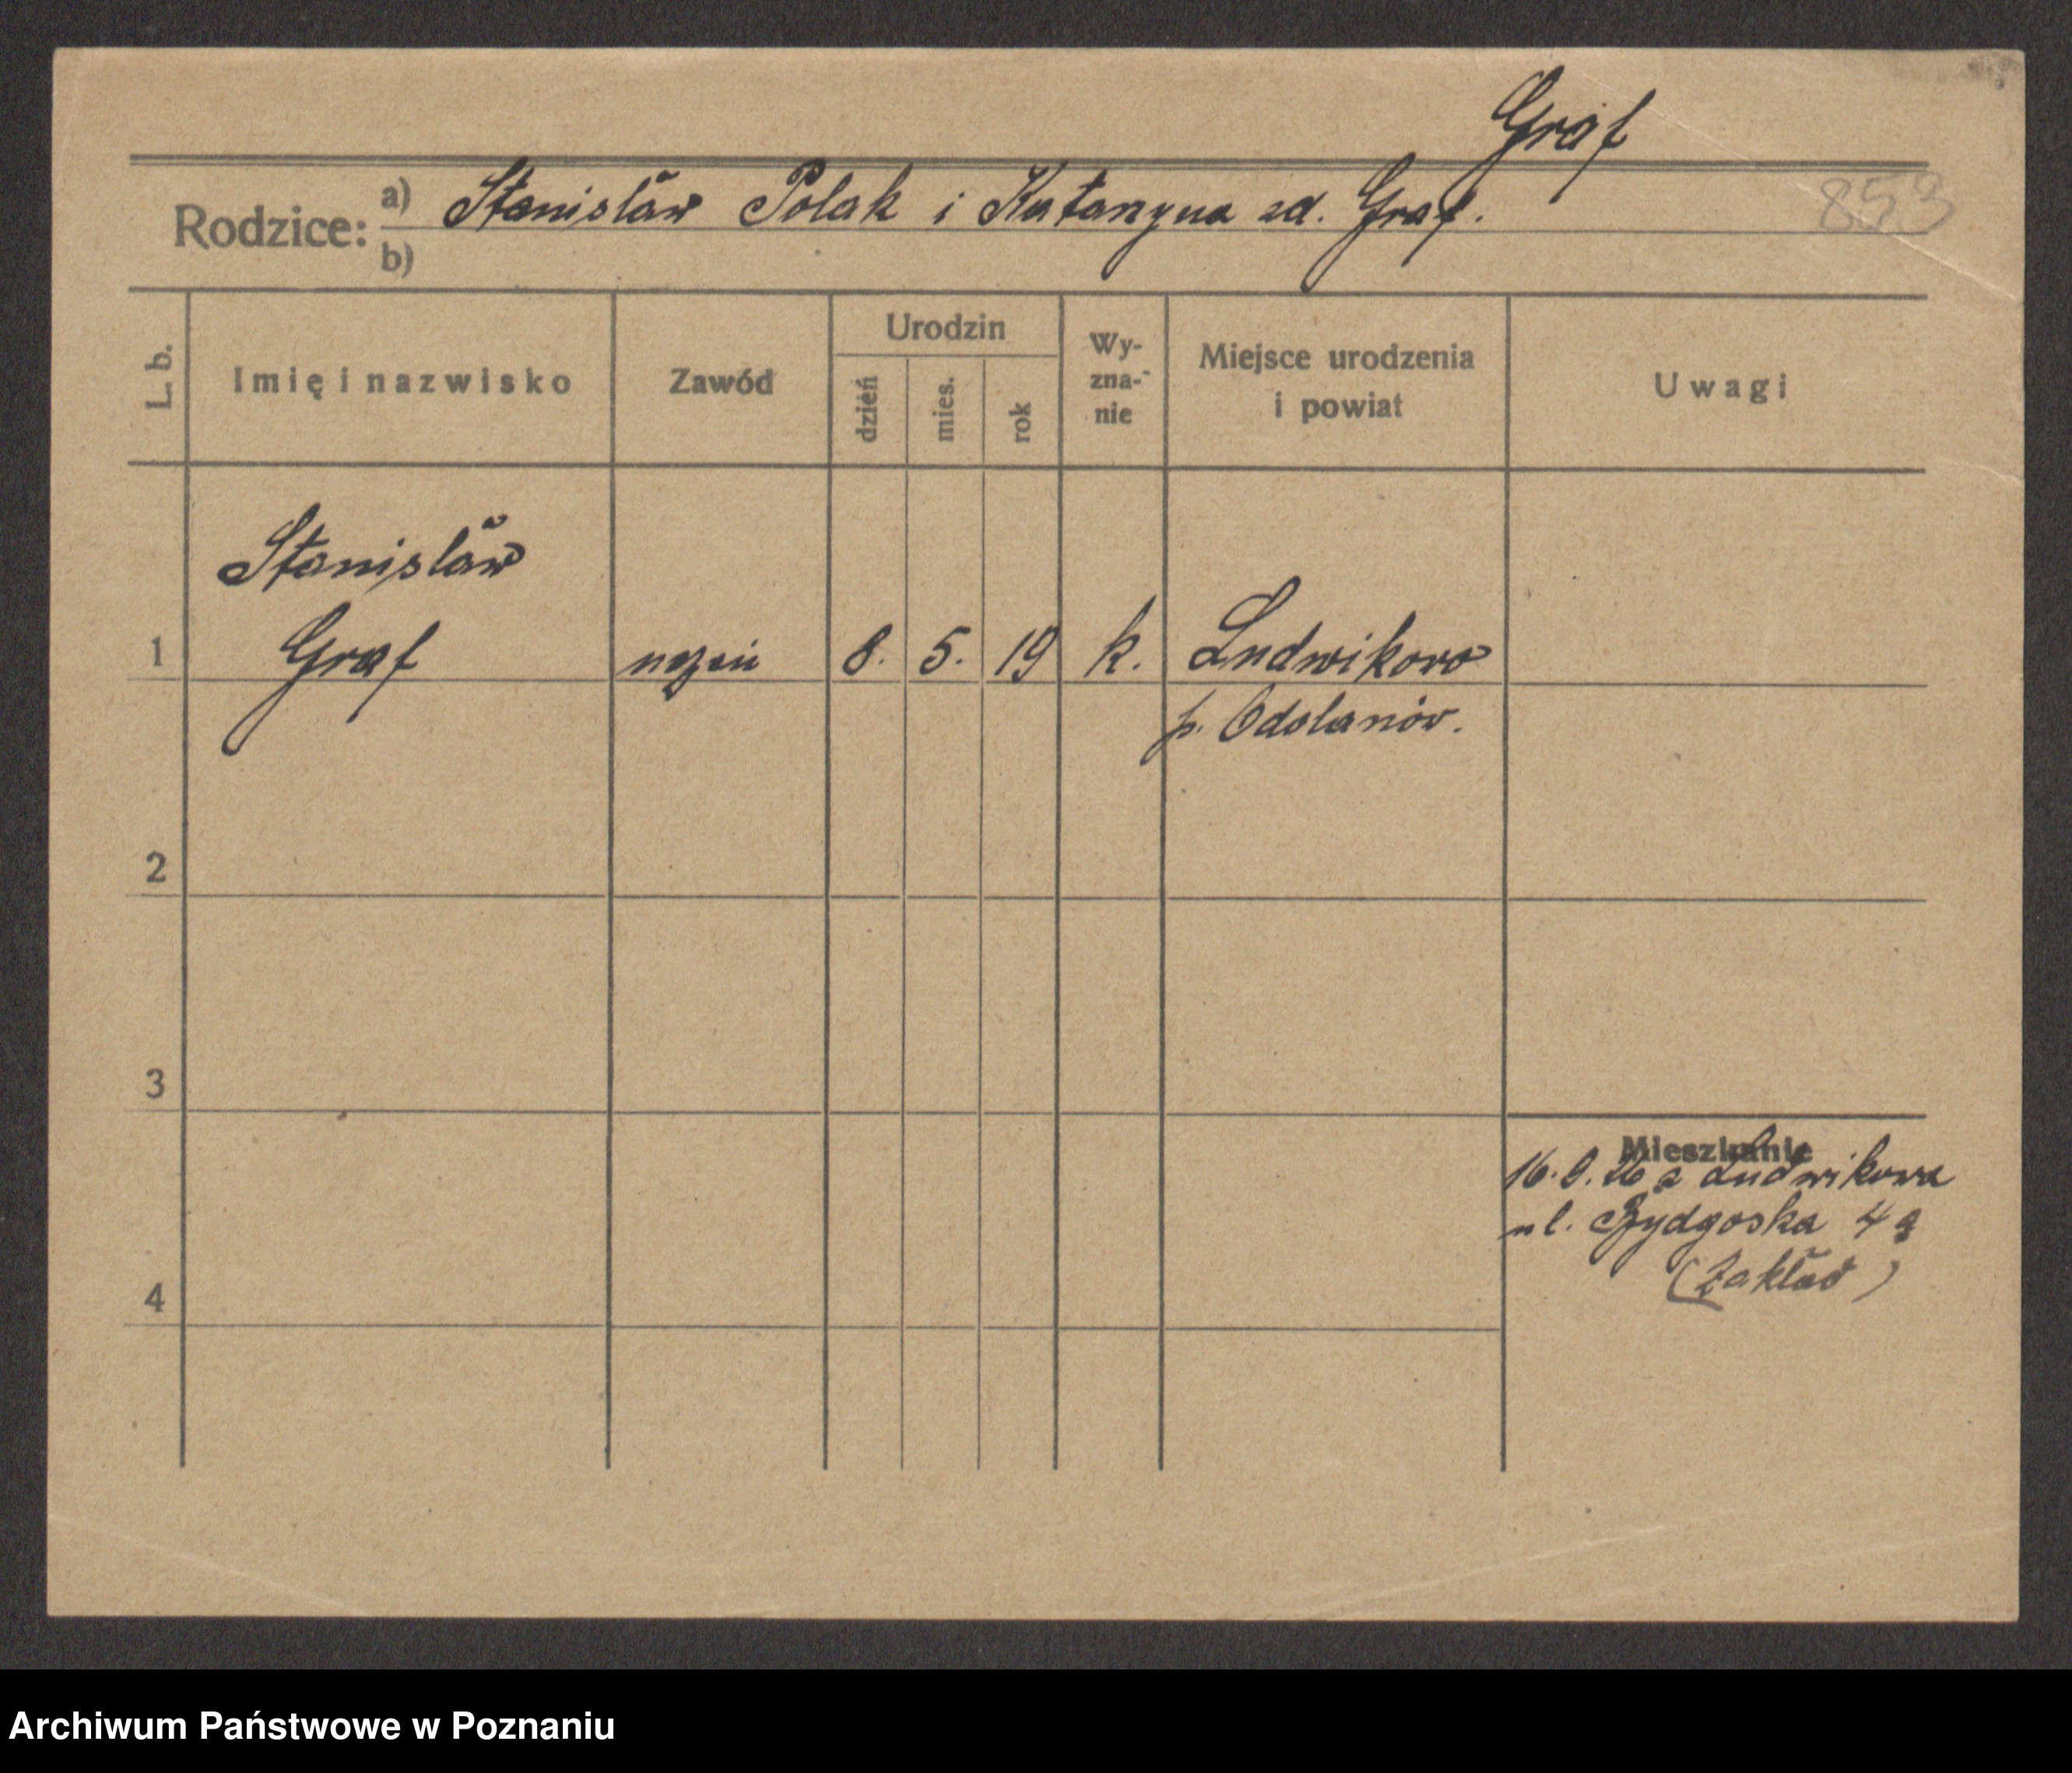 Graf
Rodzice: a) Stanisław Polak i Katarzyna zd. Graf.
853
b)
L. b.
Imię i nazwisko
Zawód
Urodzin
dzień
mies.
rok
Wy-
zna-
nie
Miejsce urodzenia
i powiat
Uwagi
Stanisław
1 Graf uczeń 8. 5. 19 k. Ludwikowo
p. Odolanów.
2
3
Mieszkanie
16. 26 z Ludwikowa
ul. Bydgoska 4a
(Zakład)
4
Archiwum Państwowe w Poznaniu